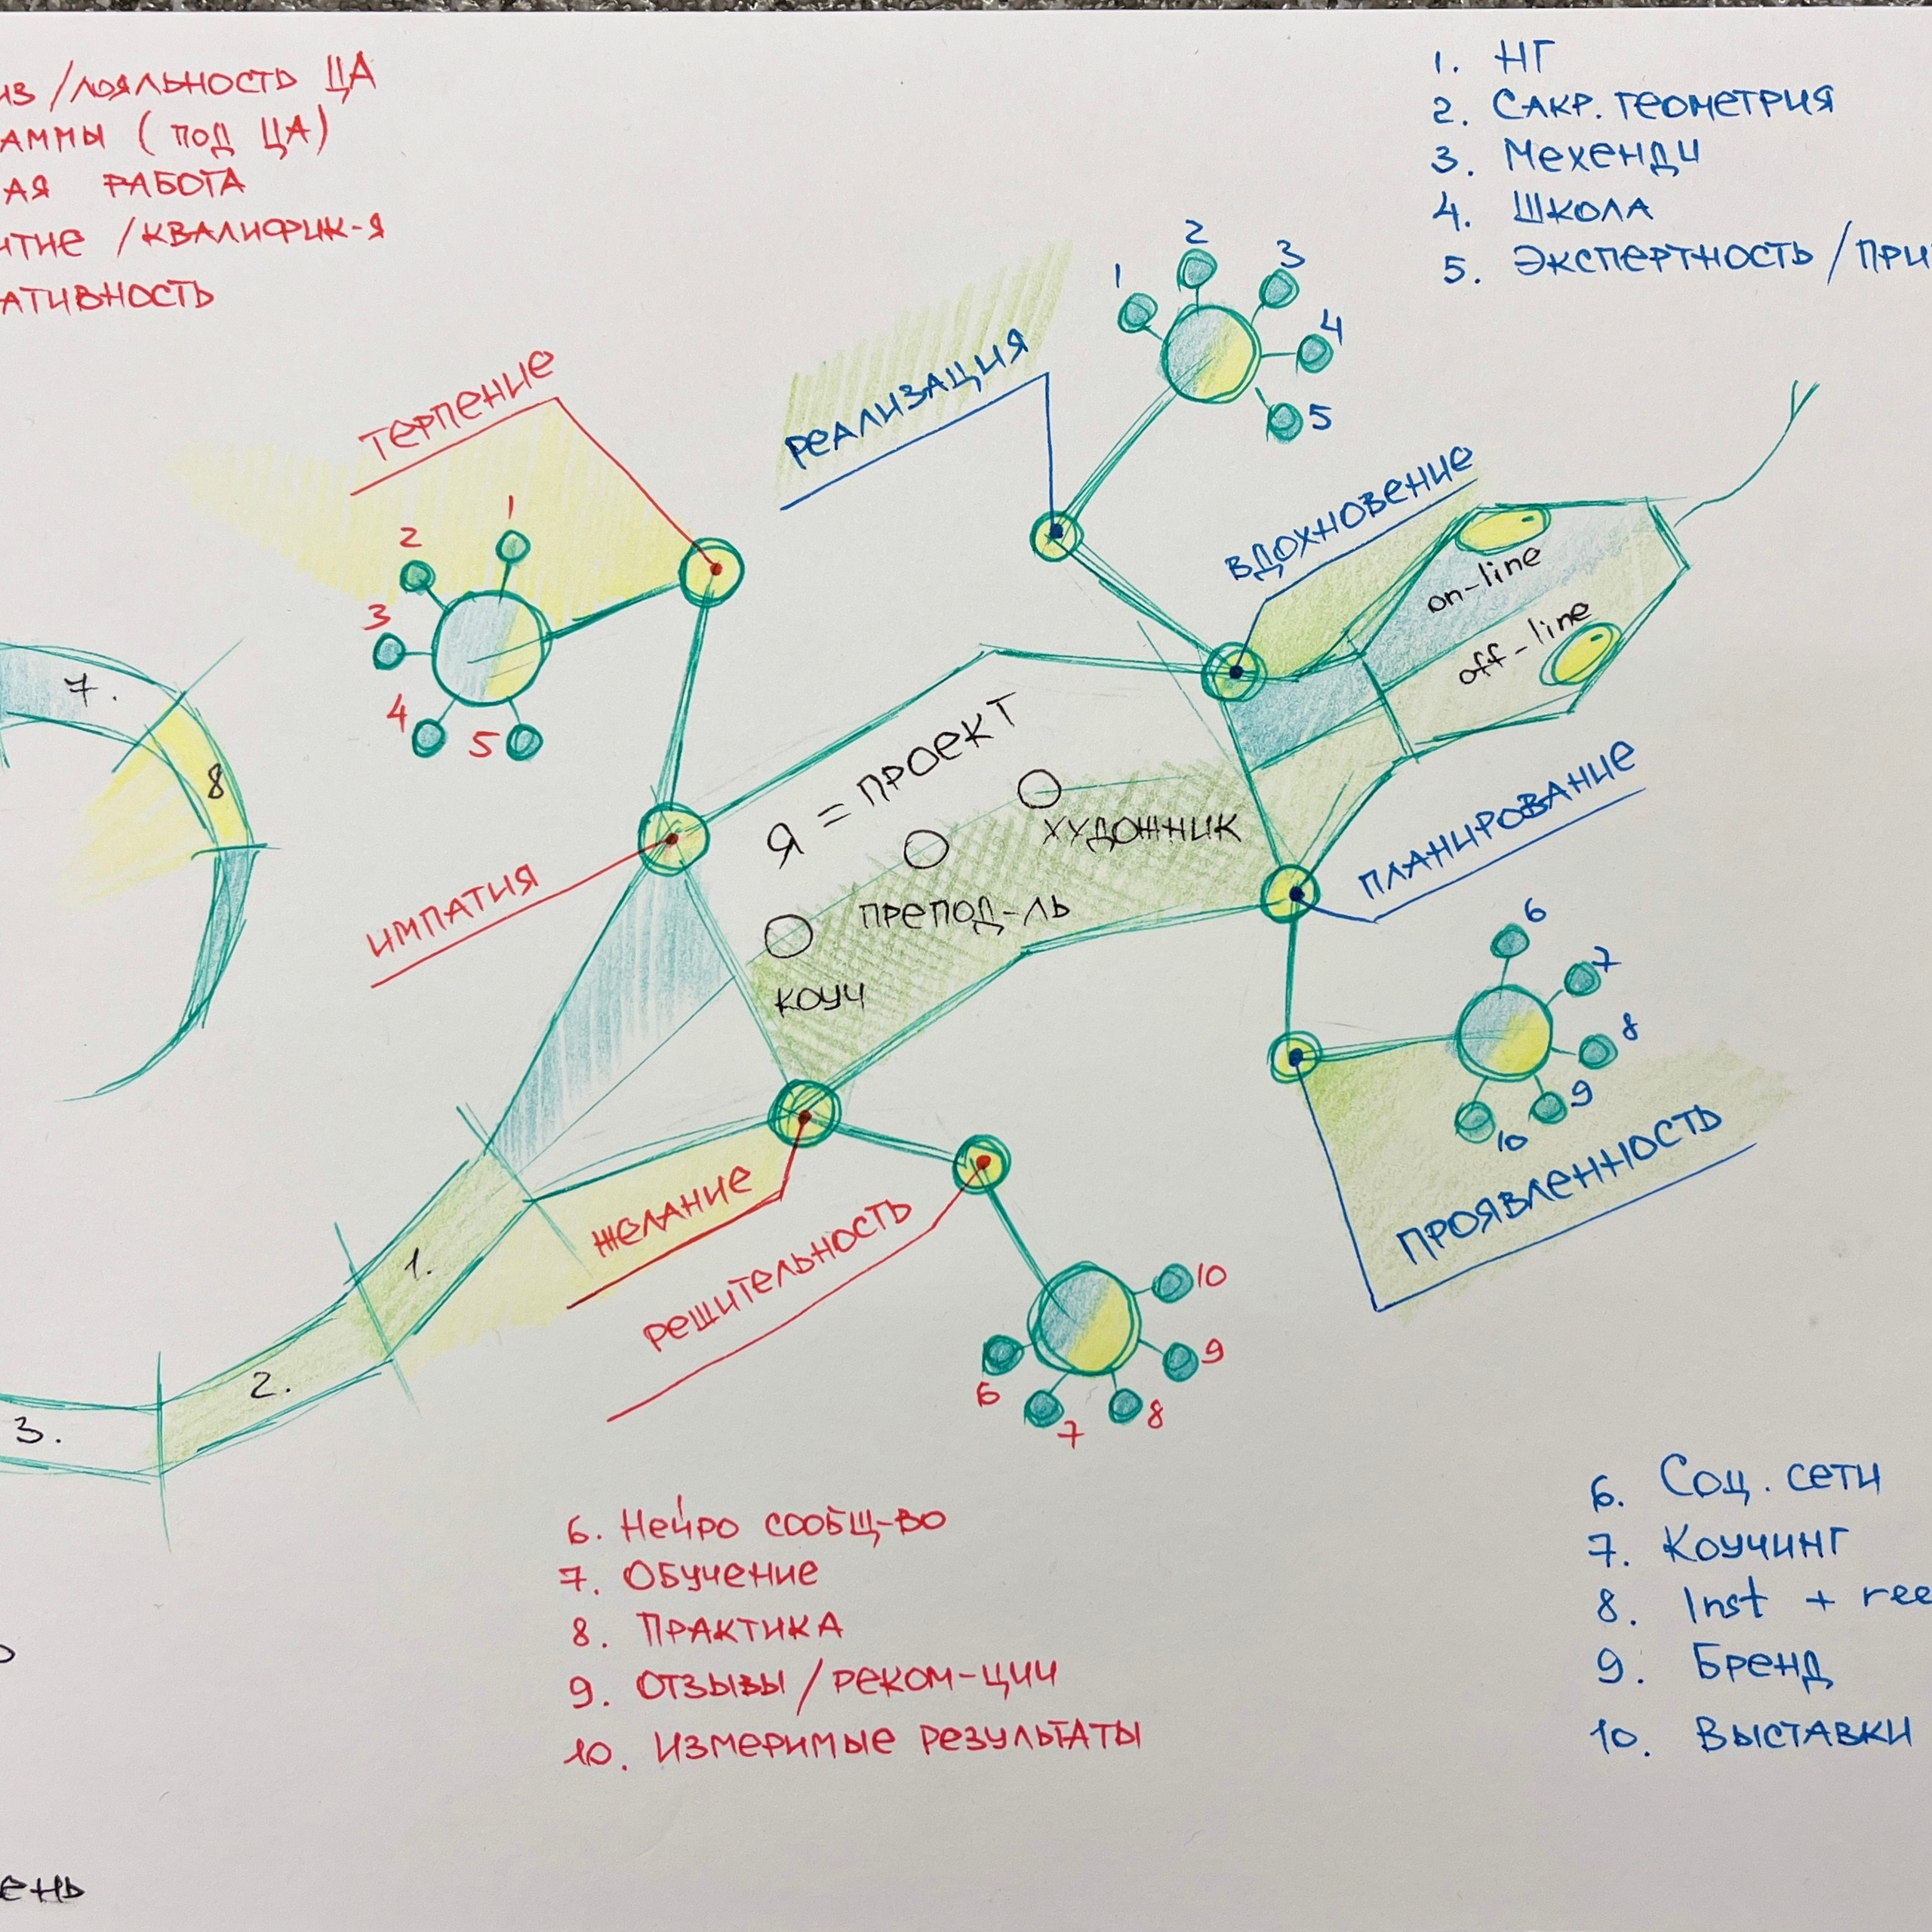 из /лояльность ЦА
аммы (под ЦА)
ая работа
итие /квалифик-я
ативность
1. НГ
2. Сакр. геометрия
3. Мехенди
4. Школа
5. Экспертность /при
Терпение
1
2
3
4
5
Реализация
1
2
3
4
5
Вдохновение
on-line
off-line
Я = проект
художник
препод-ль
коуч
Импатия
Планирование
6
7
8
9
10
Проявленность
7.
8
Желание
Решительность
10
9
8
7
6
1.
2.
3.
6. Нейро сообщ-во
7. Обучение
8. Практика
9. Отзывы/реком-ции
10. Измеримые результаты
6. Соц. сети
7. Коучинг
8. Inst + ree
9. Бренд
10. Выставки
ень